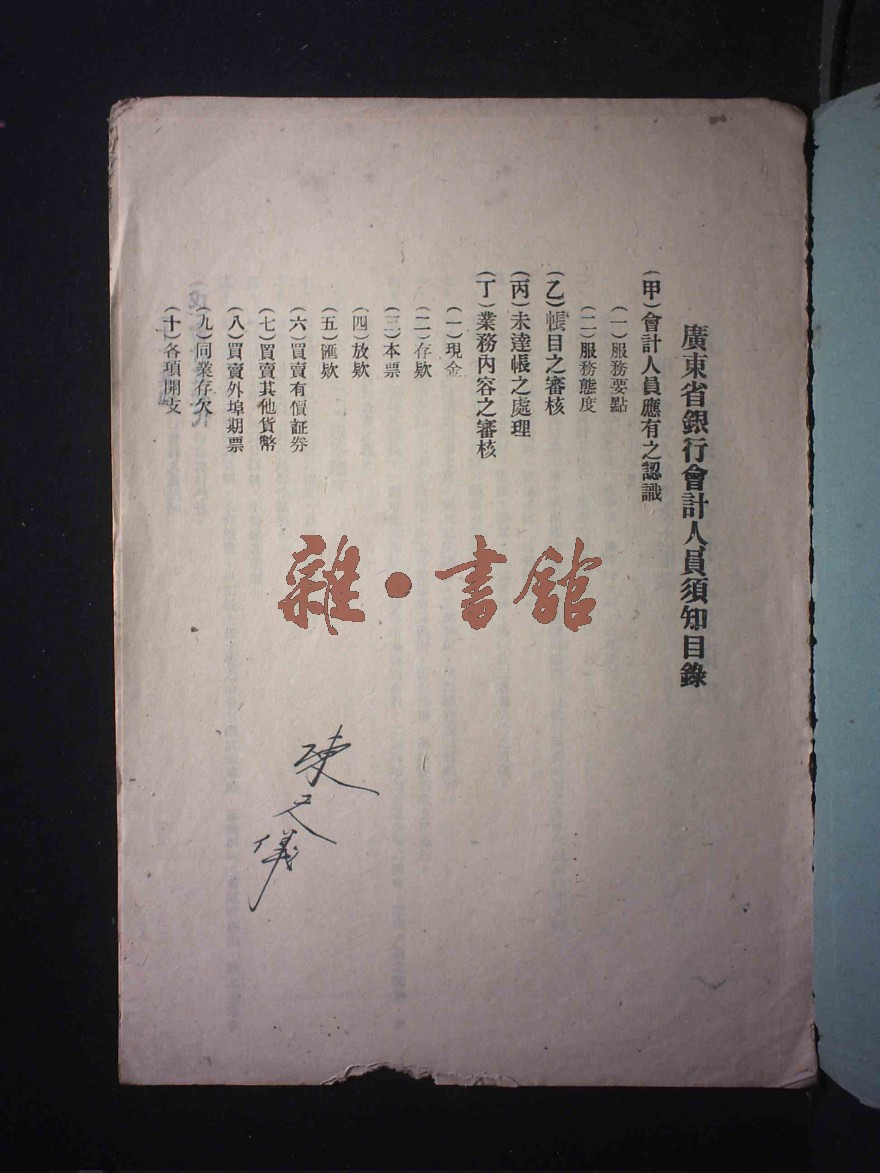 廣東省銀行會計人員須知目錄
(甲)會計人員應有之認識
(一)服務要點
(二)服務態度
(乙)帳目之審核
(丙)未達帳之處理
(丁)業務內容之審核
(一)現金
(二)存欵
(三)本票
(四)放欵
(五)匯欵
(六)買賣有價証券
(七)買賣其他貨幣
(八)買賣外埠期票
(九)同業存欠
(十)各項開支
雜·書舘